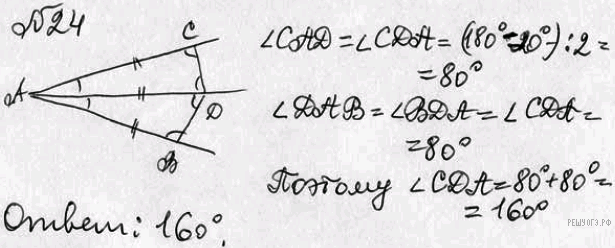 №24
C
A
D
B
∠CAD = ∠CDA = (180° - 20°) : 2 =
= 80°
∠DAB = ∠BDA = ∠CDA =
= 80°
Поэтому ∠CDA = 80° + 80° =
= 160°
Ответ: 160°.
РЕШУОГЭ.РФ